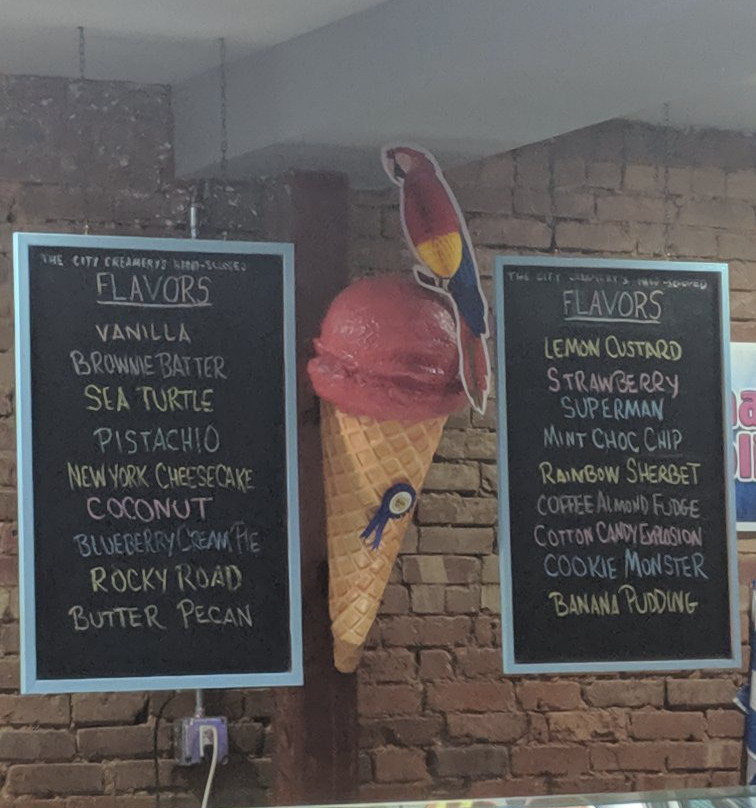 THE CITY CREAMERY'S HAND-SCOOPED
FLAVORS
VANILLA
BROWNIE BATTER
SEA TURTLE
PISTACHIO
NEW YORK CHEESECAKE
COCONUT
BLUEBERRY CREAM PIE
ROCKY ROAD
BUTTER PECAN
THE CITY CREAMERY'S HAND-SCOOPED
FLAVORS
LEMON CUSTARD
STRAWBERRY
SUPERMAN
MINT CHOC CHIP
RAINBOW SHERBET
COFFEE ALMOND FUDGE
COTTON CANDY EXPLOSION
COOKIE MONSTER
BANANA PUDDING